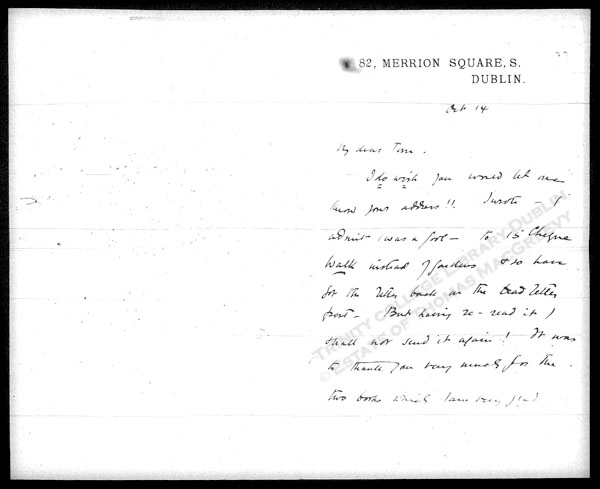 82, MERRION SQUARE, S.
DUBLIN.
Oct 14
My dear Tom.
I do wish you would let me
know your address!! I wrote – I
admit I was a fool – to 15 Cheyne
Walk instead of Gardens & so have
got the letter back in the Dead Letter
post – But having re-read it I
shall not send it again! It was
to thank you very much for the
two books which I am very glad
TRINITY COLLEGE LIBRARY DUBLIN.
© ESTATE OF THOMAS MACGREEVY